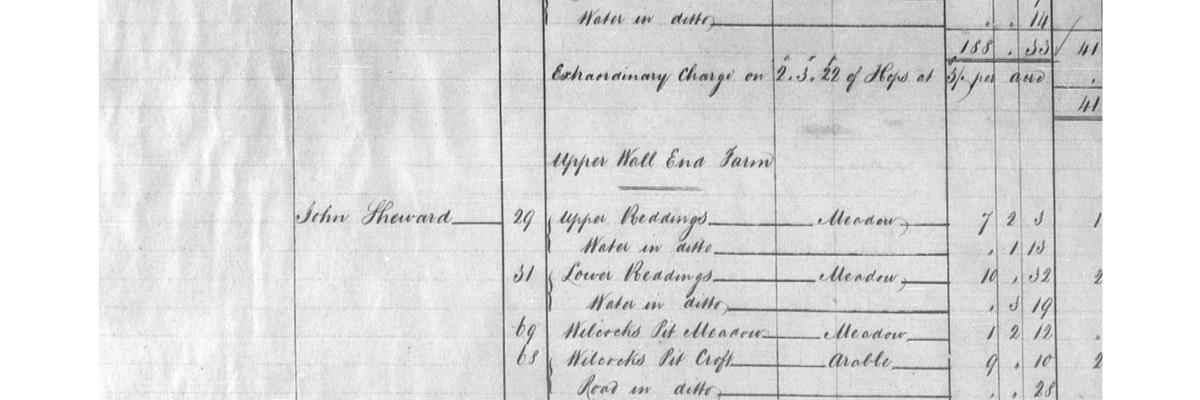 Water in ditto . . 14
188 . 33 41
Extraordinary Charge on 2.3.22 of Hops at 5/ per acre .
41
Upper Wall End Farm
John Sheward 29 Upper Reddings Meadow 7 2 3 1
Water in ditto . 1 13
31 Lower Reddings Meadow 10 . 32 2
Water in ditto . 3 19
69 Wilcocks Pit Meadow Meadow 1 2 12 .
68 Wilcocks Pit Croft Arable 9 . 10 2
Road in ditto . . 28